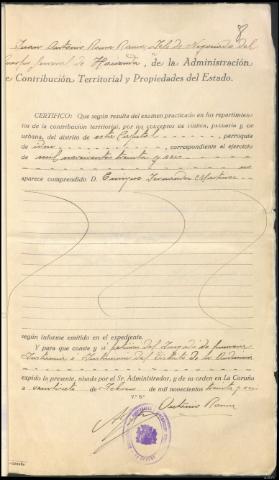 8
Juan Antonio Rama Rama, Jefe de Negociado del
Cuerpo general de Hacienda, de la Administración
e Contribución Territorial y Propiedades del Estado.
CERTIFICO: Que según resulta del examen practicado en los repartimien-
tos de la contribución territorial, por los conceptos de rústica, pecuaria y de
urbana, del distrito de esta Capital, parroquia
de idem, correspondiente al ejercicio
de mil novecientos treinta y seis
aparece comprendido D. Fernández Martínez
según informe emitido en el expediente.
Y para que conste y a petición del Juzgado de primera
Instancia e Instrucción del distrito de la Audiencia
expido la presente, visada por el Sr. Administrador, y de su orden en La Coruña
a veintisiete de Febrero de mil novecientos treinta y seis
V.º B.º
Antonio Rama